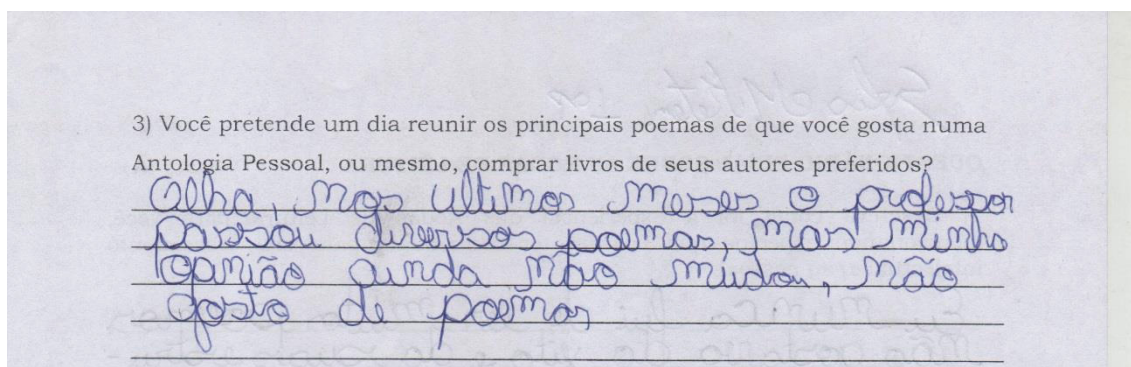 3) Você pretende um dia reunir os principais poemas de que você gosta numa
Antologia Pessoal, ou mesmo, comprar livros de seus autores preferidos?
Olha, nos ultimos meses o professor
passou diversos poemas, mas minha
opinião ainda não mudou, não
gosto de poemas